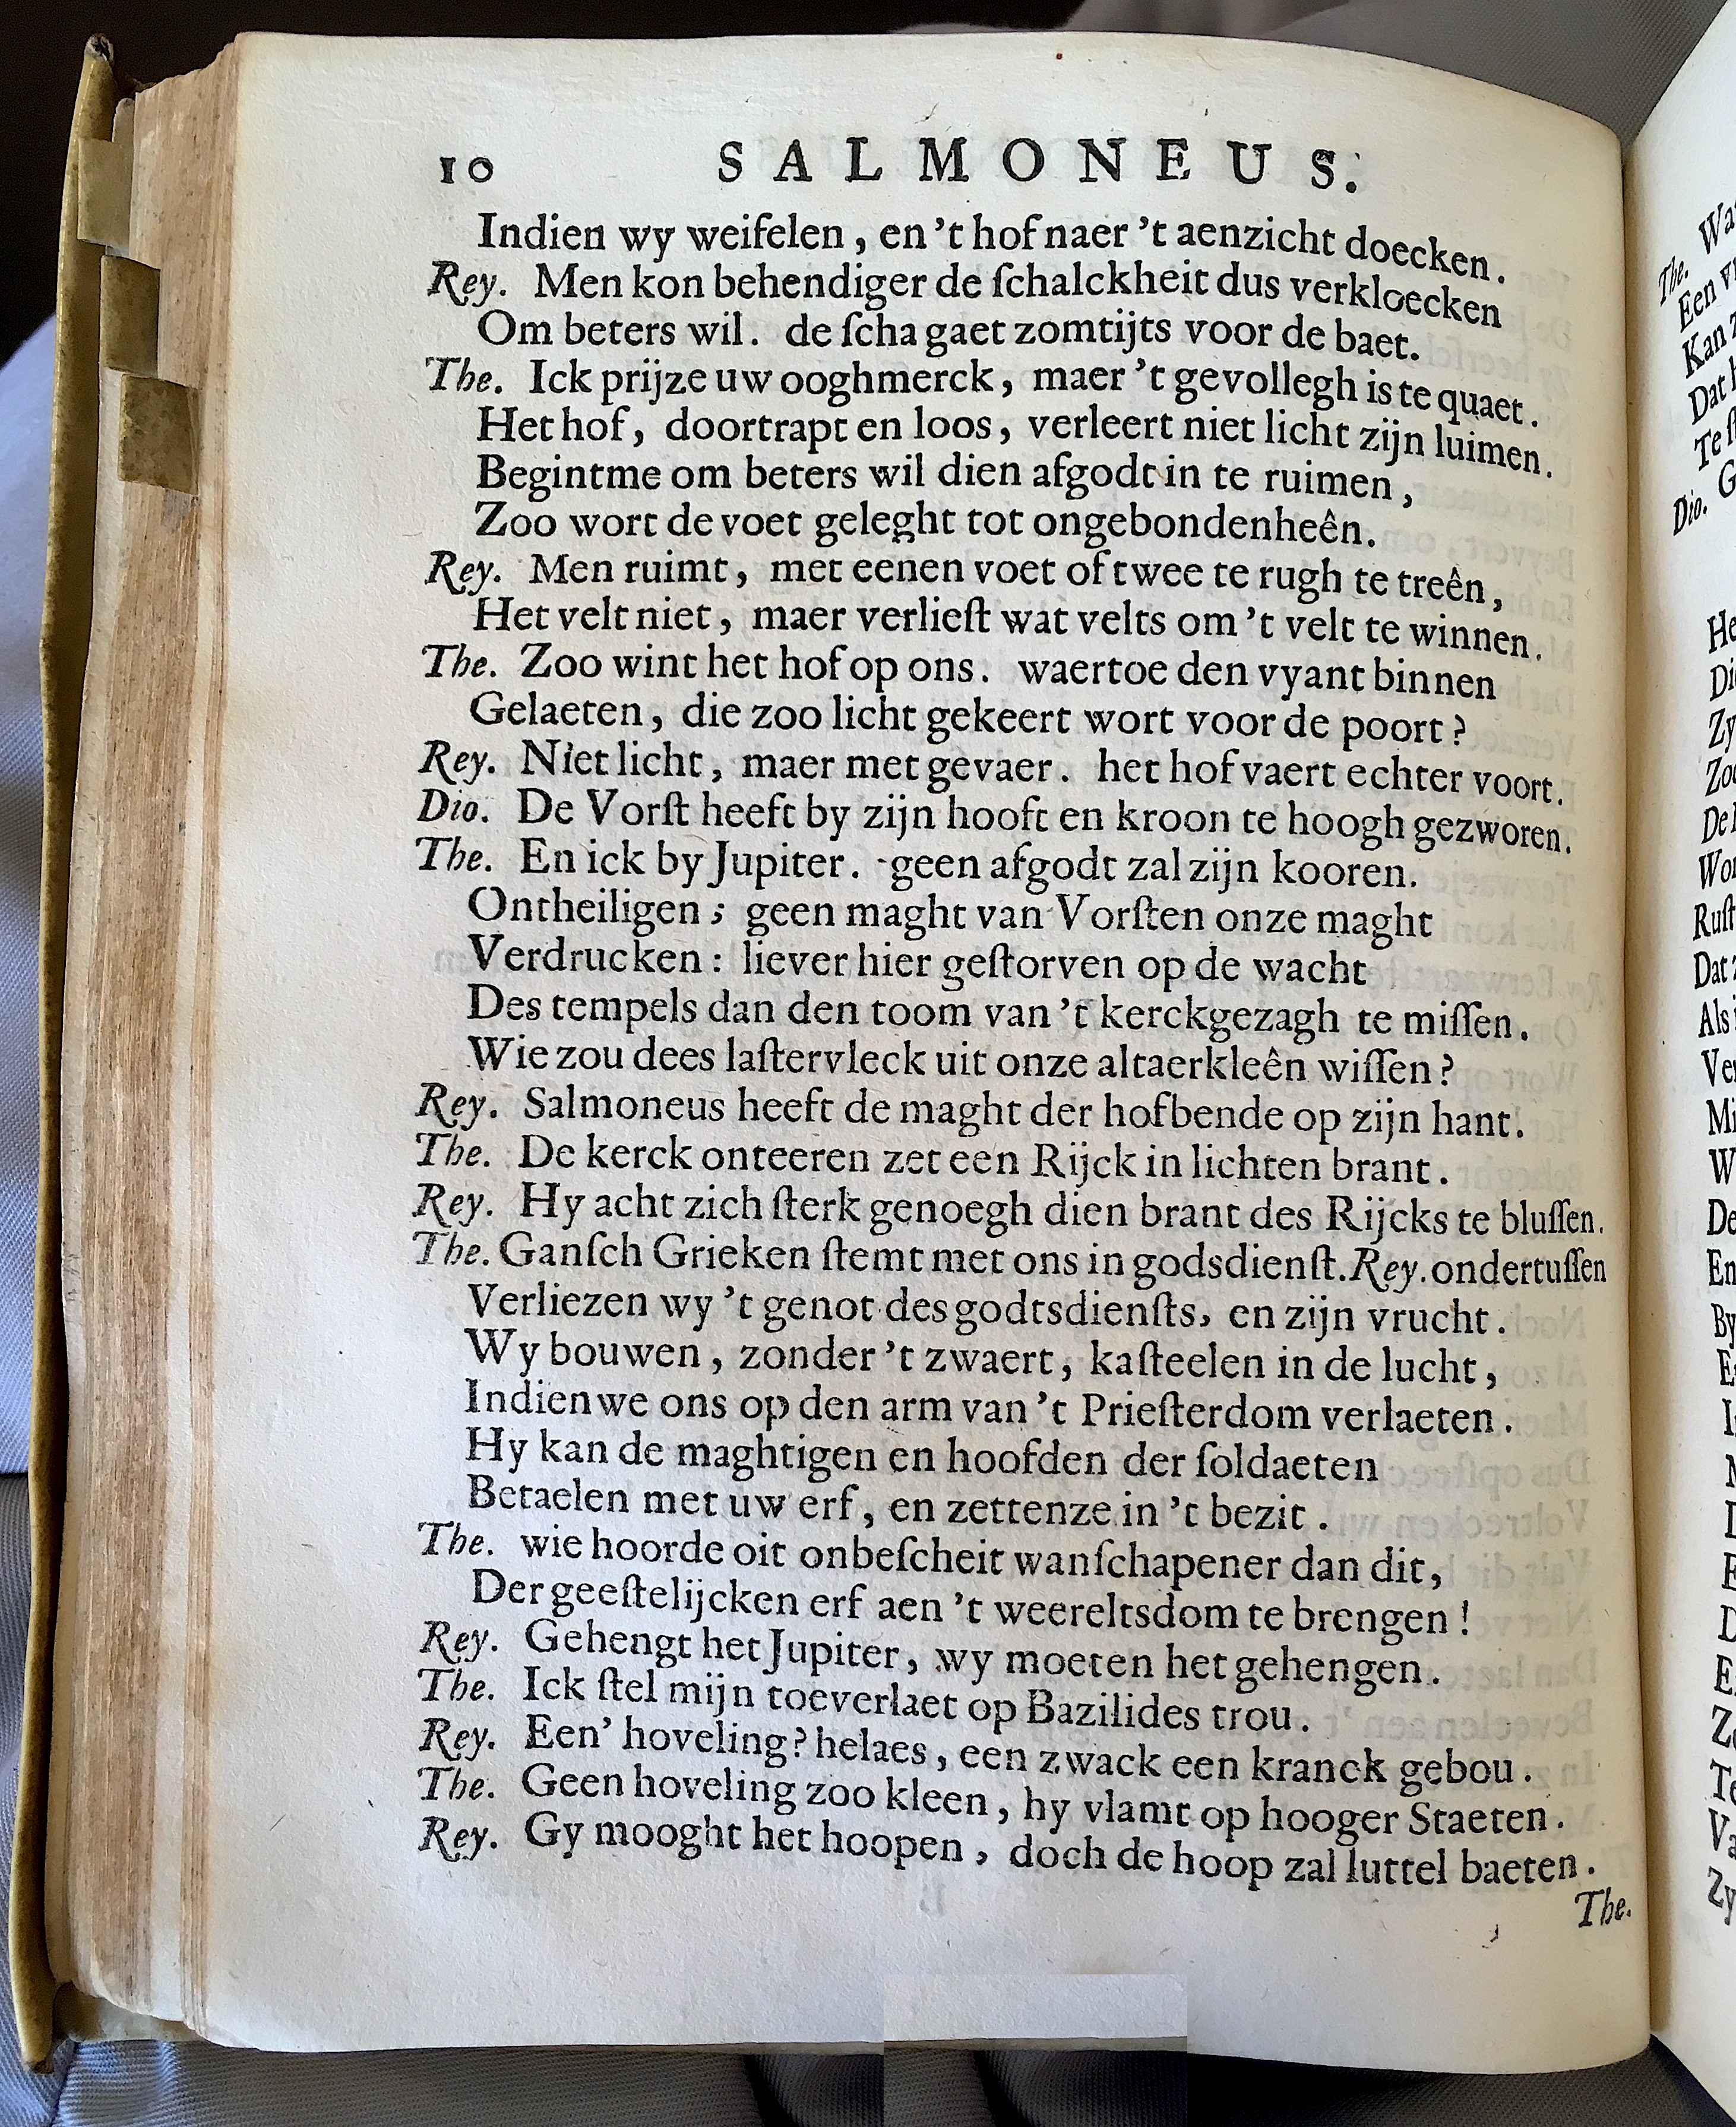 10 SALMONEUS.
Indien wy weifelen, en 't hof naer 't aenzicht doecken.
Rey. Men kon behendiger de ſchalckheit dus verkloecken
Om beters wil. de ſcha gaet zomtijts voor de baet.
The. Ick prijze uw ooghmerck, maer 't gevollegh is te quaet.
Het hof, doortrapt en loos, verleert niet licht zijn luimen.
Begintme om beters wil dien afgodt in te ruimen,
Zoo wort de voet geleght tot ongebondenheên.
Rey. Men ruimt, met eenen voet of twee te rugh te treên,
Het velt niet, maer verlieſt wat velts om 't velt te winnen.
The. Zoo wint het hof op ons. waertoe den vyant binnen
Gelaeten, die zoo licht gekeert wort voor de poort?
Rey. Niet licht, maer met gevaer. het hof vaert echter voort.
Dio. De Vorſt heeft by zijn hooft en kroon te hoogh gezworen.
The. En ick by Jupiter. geen afgodt zal zijn kooren.
Ontheiligen; geen maght van Vorſten onze maght
Verdrucken: liever hier geſtorven op de wacht
Des tempels dan den toom van 't kerckgezagh te miſſen.
Wie zou dees laſtervleck uit onze altaerkleên wiſſen?
Rey. Salmoneus heeft de maght der hofbende op zijn hant.
The. De kerck onteeren zet een Rijck in lichten brant.
Rey. Hy acht zich ſterk genoegh dien brant des Rijcks te bluſſen.
The. Ganſch Grieken ſtemt met ons in godsdienſt. Rey. ondertuſſen
Verliezen wy 't genot des godtsdienſts, en zijn vrucht.
Wy bouwen, zonder 't zwaert, kaſteelen in de lucht,
Indien we ons op den arm van 't Prieſterdom verlaeten.
Hy kan de maghtigen en hoofden der ſoldaeten
Betaelen met uw erf, en zettenze in 't bezit.
The. wie hoorde oit onbeſcheit wanſchapener dan dit,
Der geeſtelijcken erf aen 't weereltsdom te brengen!
Rey. Gehengt het Jupiter, wy moeten het gehengen.
The. Ick ſtel mijn toeverlaet op Bazilides trou.
Rey. Een' hoveling? helaes, een zwack een kranck gebou.
The. Geen hoveling zoo kleen, hy vlamt op hooger Staeten.
Rey. Gy mooght het hoopen, doch de hoop zal luttel baeten.
The.
The.
Een
Kan
Dat
Te
Dio.